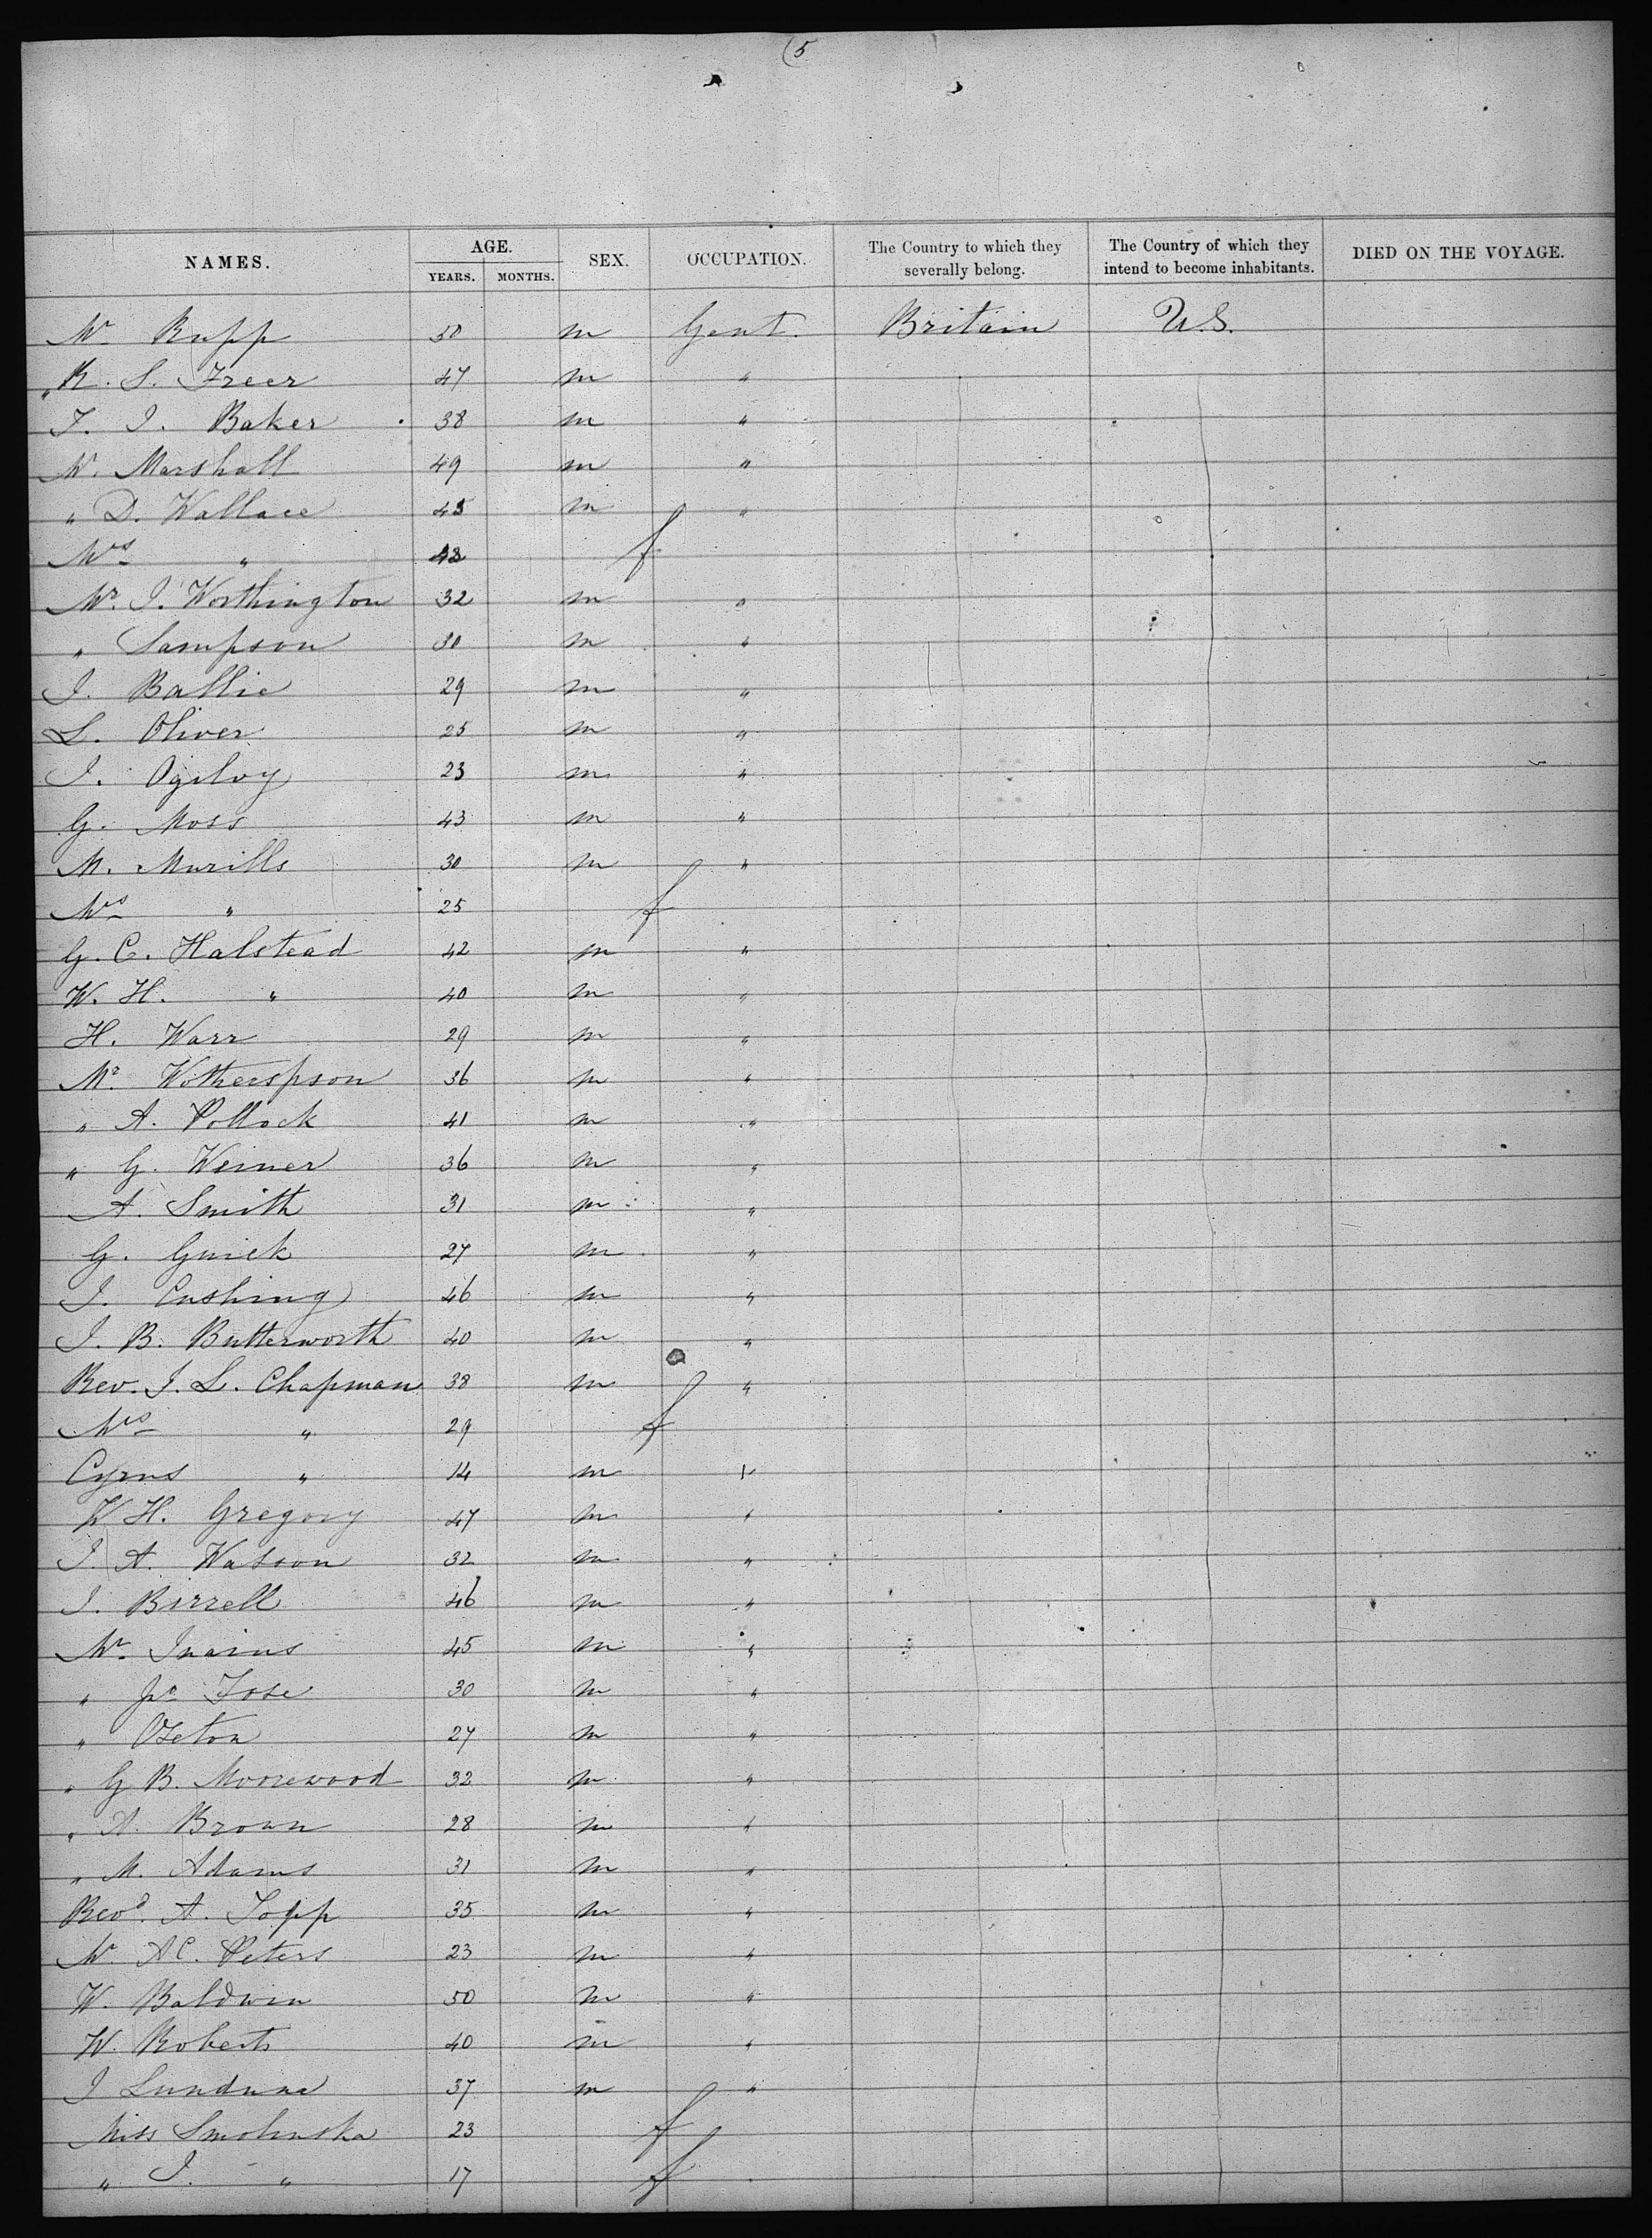 (5
NAMES. AGE. YEARS. MONTHS. SEX. OCCUPATION. The Country to which they severally belong. The Country of which they intend to become inhabitants. DIED ON THE VOYAGE.
Mr Rupp 30 m Gent. Britain U.S.
" R. S. Freer 47 m "
F. J. Baker 38 m "
W. Marshall 49 m "
" D. Wallace 45 m "
Mrs " 48 f
Mr. J. Worthington 32 m "
" Sampson 30 m "
J. Ballie 29 m "
L. Oliver 25 m "
J. Ogilvy 23 m "
G. Moss 43 m "
M. Murills 30 m "
Mrs " 25 f
G. C. Halstead 42 m "
W. H. " 40 m "
H. Warr 29 m "
Mr Wotherspson 36 m "
" A. Pollock 41 m "
" G. Weiner 36 m "
A. Smith 31 m "
G. Guick 27 m "
J. Cushing 46 m "
J. B. Butterworth 40 m "
Rev. J. L. Chapman 38 m "
Mrs " 29 f
Cyrus " 14 m "
W H. Gregory 47 m "
J. A. Watson 32 m "
J. Birrell 46 m "
Mr 45 m "
" Jose 30 m "
" 27 m "
" G B. Moorewood 32 m "
" A. Brown 28 m "
" M. Adams 31 m "
Revd. A. Topp 35 m "
Mr A C. Peters 23 m "
W. Baldwin 50 m "
W. Roberts 40 m "
J 37 m "
Miss Smolenska 23 f
" J. " 17 f